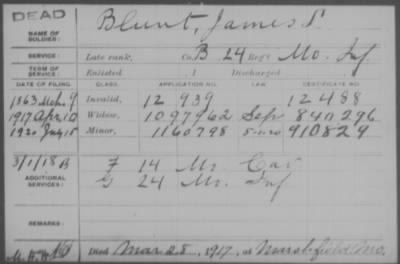 DEAD
Blunt, James S.
NAME OF SOLDIER:
SERVICE: Late rank, Co. B 24 Reg't Mo. Inf
TERM OF SERVICE: Enlisted , 1 Discharged
DATE OF FILING. CLASS. APPLICATION NO. LAW. CERTIFICATE NO.
1863 Mch. 9 Invalid, 12 939 12 488
1917 Apr 10 Widow, 1097962 Sep 840296
1920 July 15 Minor, 1160798 910829
3/1/18 B F 14 Mo. Cav
ADDITIONAL SERVICES: G 24 Mo. Inf
REMARKS:
Died Mar 28, 1917, at Marshfield Mo.